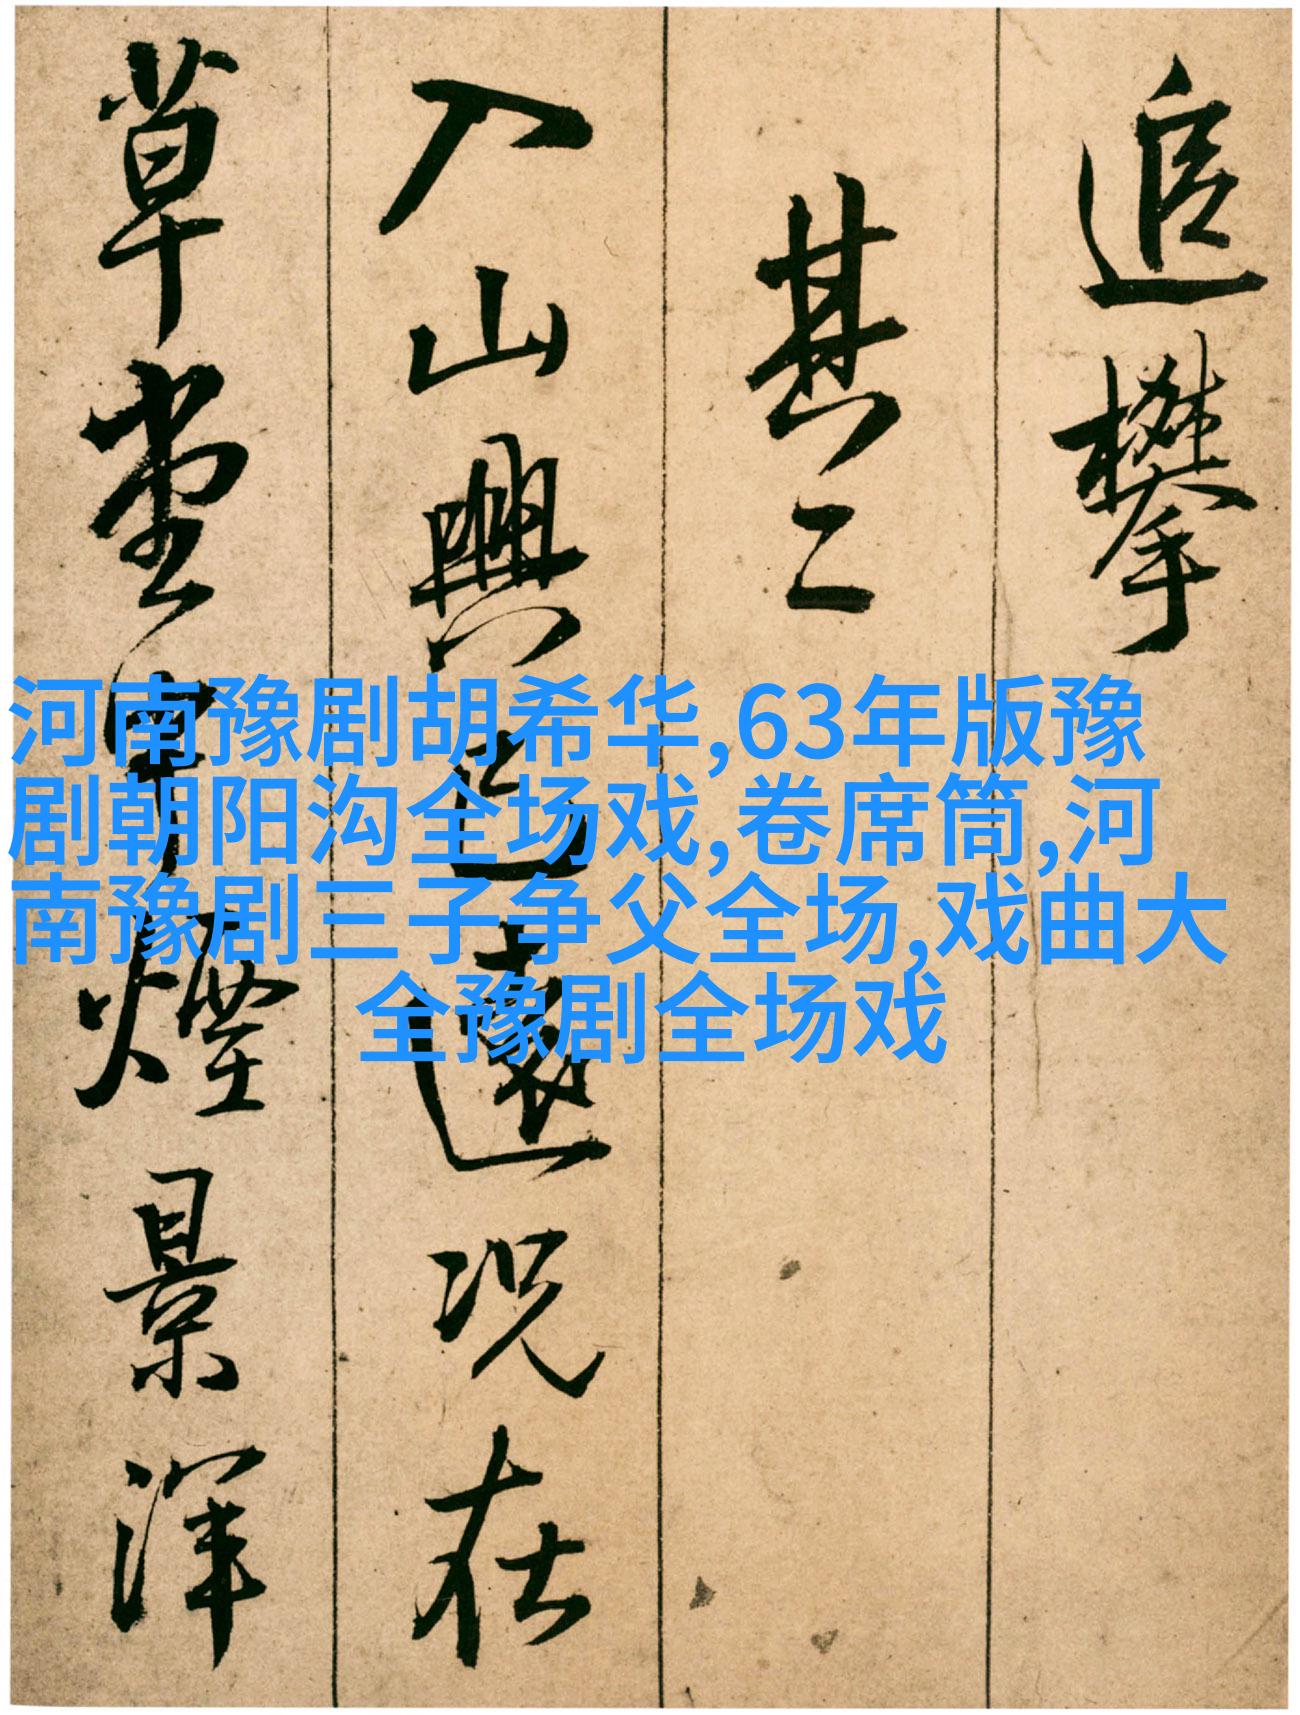 追攀
其二
入山興已遠况在
草堂中煙景渾
河南豫剧胡希华,63年版豫
剧朝阳沟全场戏,卷席筒,河
南豫剧三子争父全场,戏曲大
全豫剧全场戏